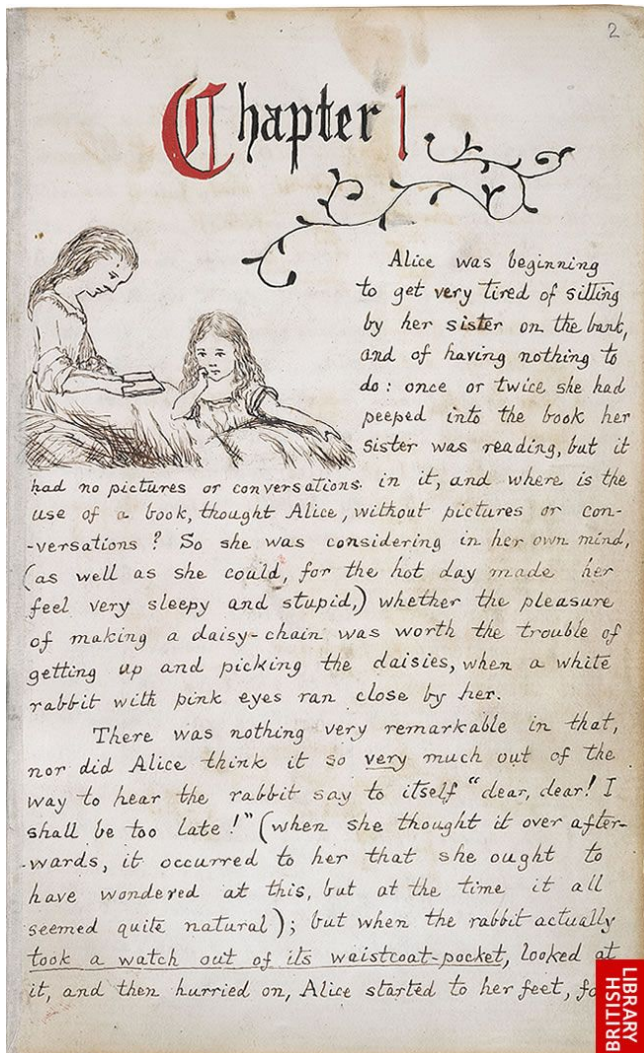 2
Chapter 1
Alice was beginning
to get very tired of sitting
by her sister on the bank,
and of having nothing to
do: once or twice she had
peeped into the book her
sister was reading, but it
had no pictures or conversations in it, and where is the
use of a book, thought Alice, without pictures or con-
-versations? So she was considering in her own mind,
(as well as she could, for the hot day made her
feel very sleepy and stupid,) whether the pleasure
of making a daisy-chain was worth the trouble of
getting up and picking the daisies, when a white
rabbit with pink eyes ran close by her.
There was nothing very remarkable in that,
nor did Alice think it so very much out of the
way to hear the rabbit say to itself "dear, dear! I
shall be too late!" (when she thought it over after-
-wards, it occurred to her that she ought to
have wondered at this, but at the time it all
seemed quite natural); but when the rabbit actually
took a watch out of its waistcoat-pocket, looked at
it, and then hurried on, Alice started to her feet, fo
BRITISH
LIBRARY